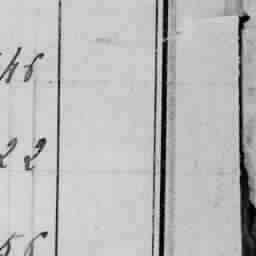 46
22
56